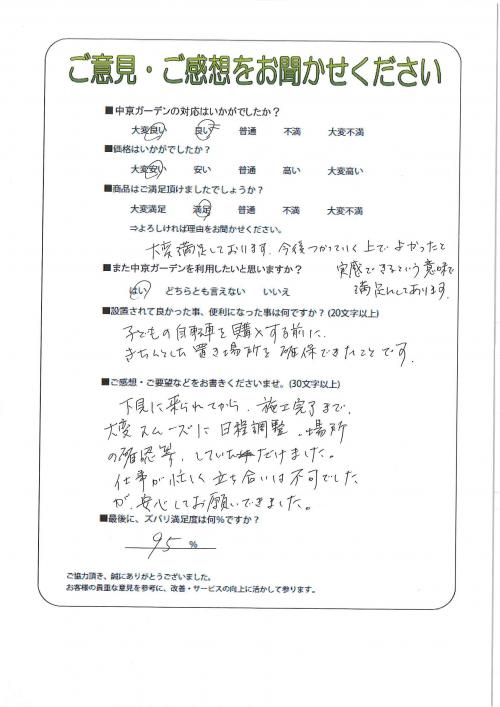 ご意見・ご感想をお聞かせください
■中京ガーデンの対応はいかがでしたか？
大変良い 良い 普通 不満 大変不満
■価格はいかがでしたか？
大変安い 安い 普通 高い 大変高い
■商品はご満足頂けましたでしょうか？
大変満足 満足 普通 不満 大変不満
⇒よろしければ理由をお聞かせください。
大変満足しております。今後つかっていく上でよかったと
実感できるという意味で
満足しております。
■また中京ガーデンを利用したいと思いますか？
はい どちらとも言えない いいえ
■設置されて良かった事、便利になった事は何ですか？(20文字以上)
子どもの自転車を購入する前に、
きちんとした置き場所を確保できたことです。
■ご感想・ご要望などをお書きくださいませ。(30文字以上)
下見に来られてから、施工完了まで、
大変スムーズに日程調整、場所
の確認等、していただけました。
仕事が忙しく立ち合いは不可でした
が、安心してお願いできました。
■最後に、ズバリ満足度は何％ですか？
95 %
ご協力頂き、誠にありがとうございました。
お客様の貴重な意見を参考に、改善・サービスの向上に活かして参ります。